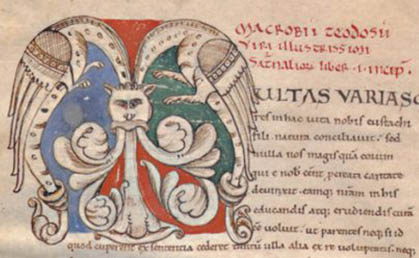 MACROBII TEODOSII
VIRI ILLUSTRISSIM
SATNALIOR LIBER · I · INCEP̄
ULTAS VARIASQ
res in hac uita nobis eustachi
fili natura conciliauit · sed
nulla nos magis quā eorum
qui e nob̄ cent, pereata caritate
deuinxit · eamq; nr̄am in his
educandis atq; erudiendis curā
ēē uoluit · ut parentes neq; si id
quod cuperent ex sentencia cederet ulla alia ex re uoluptatis · neq